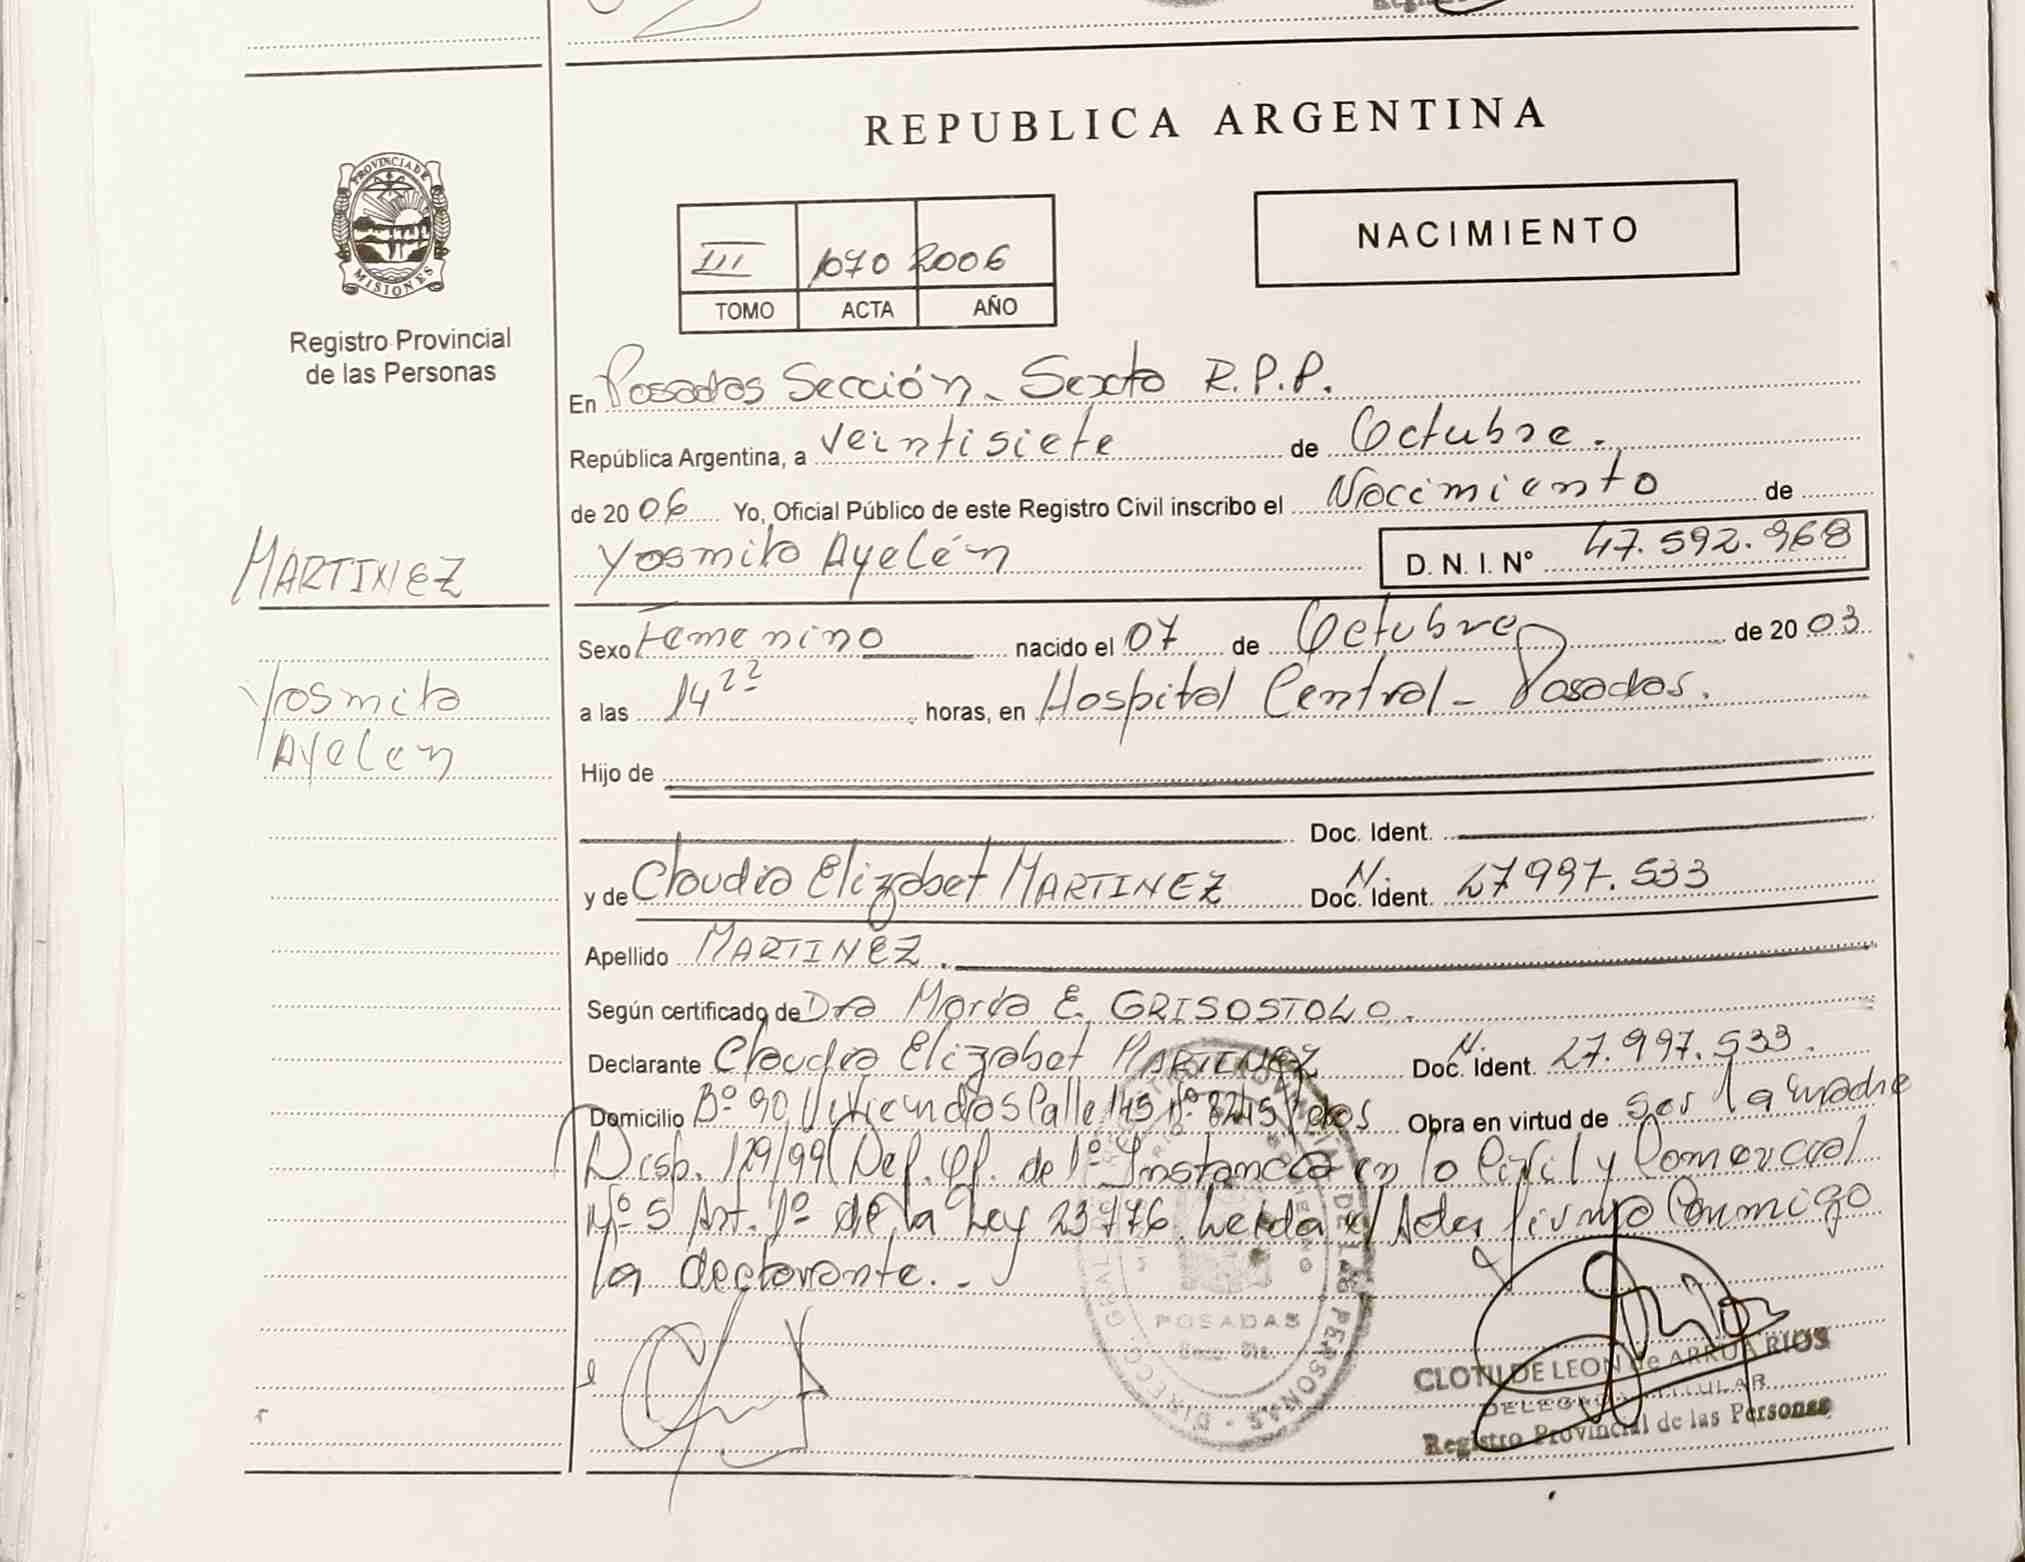 REPUBLICA ARGENTINA
PROVINCIA DE
MISIONES
Registro Provincial
de las Personas
NACIMIENTO
III 1070 2006
TOMO ACTA AÑO
En Posadas Sección Sexta R.P.P.
República Argentina, a veintisiete de Octubre.
de 2006 Yo, Oficial Público de este Registro Civil inscribo el Nacimiento de
MARTINEZ
Yasmila Ayelén D. N. I. Nº 47.592.968
Sexo Femenino nacido el 07 de Octubre de 2003
Yasmila
Ayelen
a las 14 22 horas, en Hospital Central - Posadas.
Hijo de
Doc. Ident.
y de Claudia Elizabet MARTINEZ Doc. Ident. N. 27997.533
Apellido MARTINEZ.
Según certificado de Dra María E. GRISOSTOLO.
Declarante Claudia Elizabet MARTINEZ Doc. Ident. N. 27.997.533.
Domicilio Bº 90 Viviendas Calle 145 Nº 8245 Pdas Obra en virtud de ser la madre
Disp. 129/99 Def. Of. de 1º Instancia en lo Civil y Comercial
Nº 5 Art. 1º de la Ley 23776. Leida el Acta firma Conmigo
la declarante. -
POSADAS
CLOTILDE LEON de ARRUA RIOS
DELEGADA TITULAR
Registro Provincial de las Personas